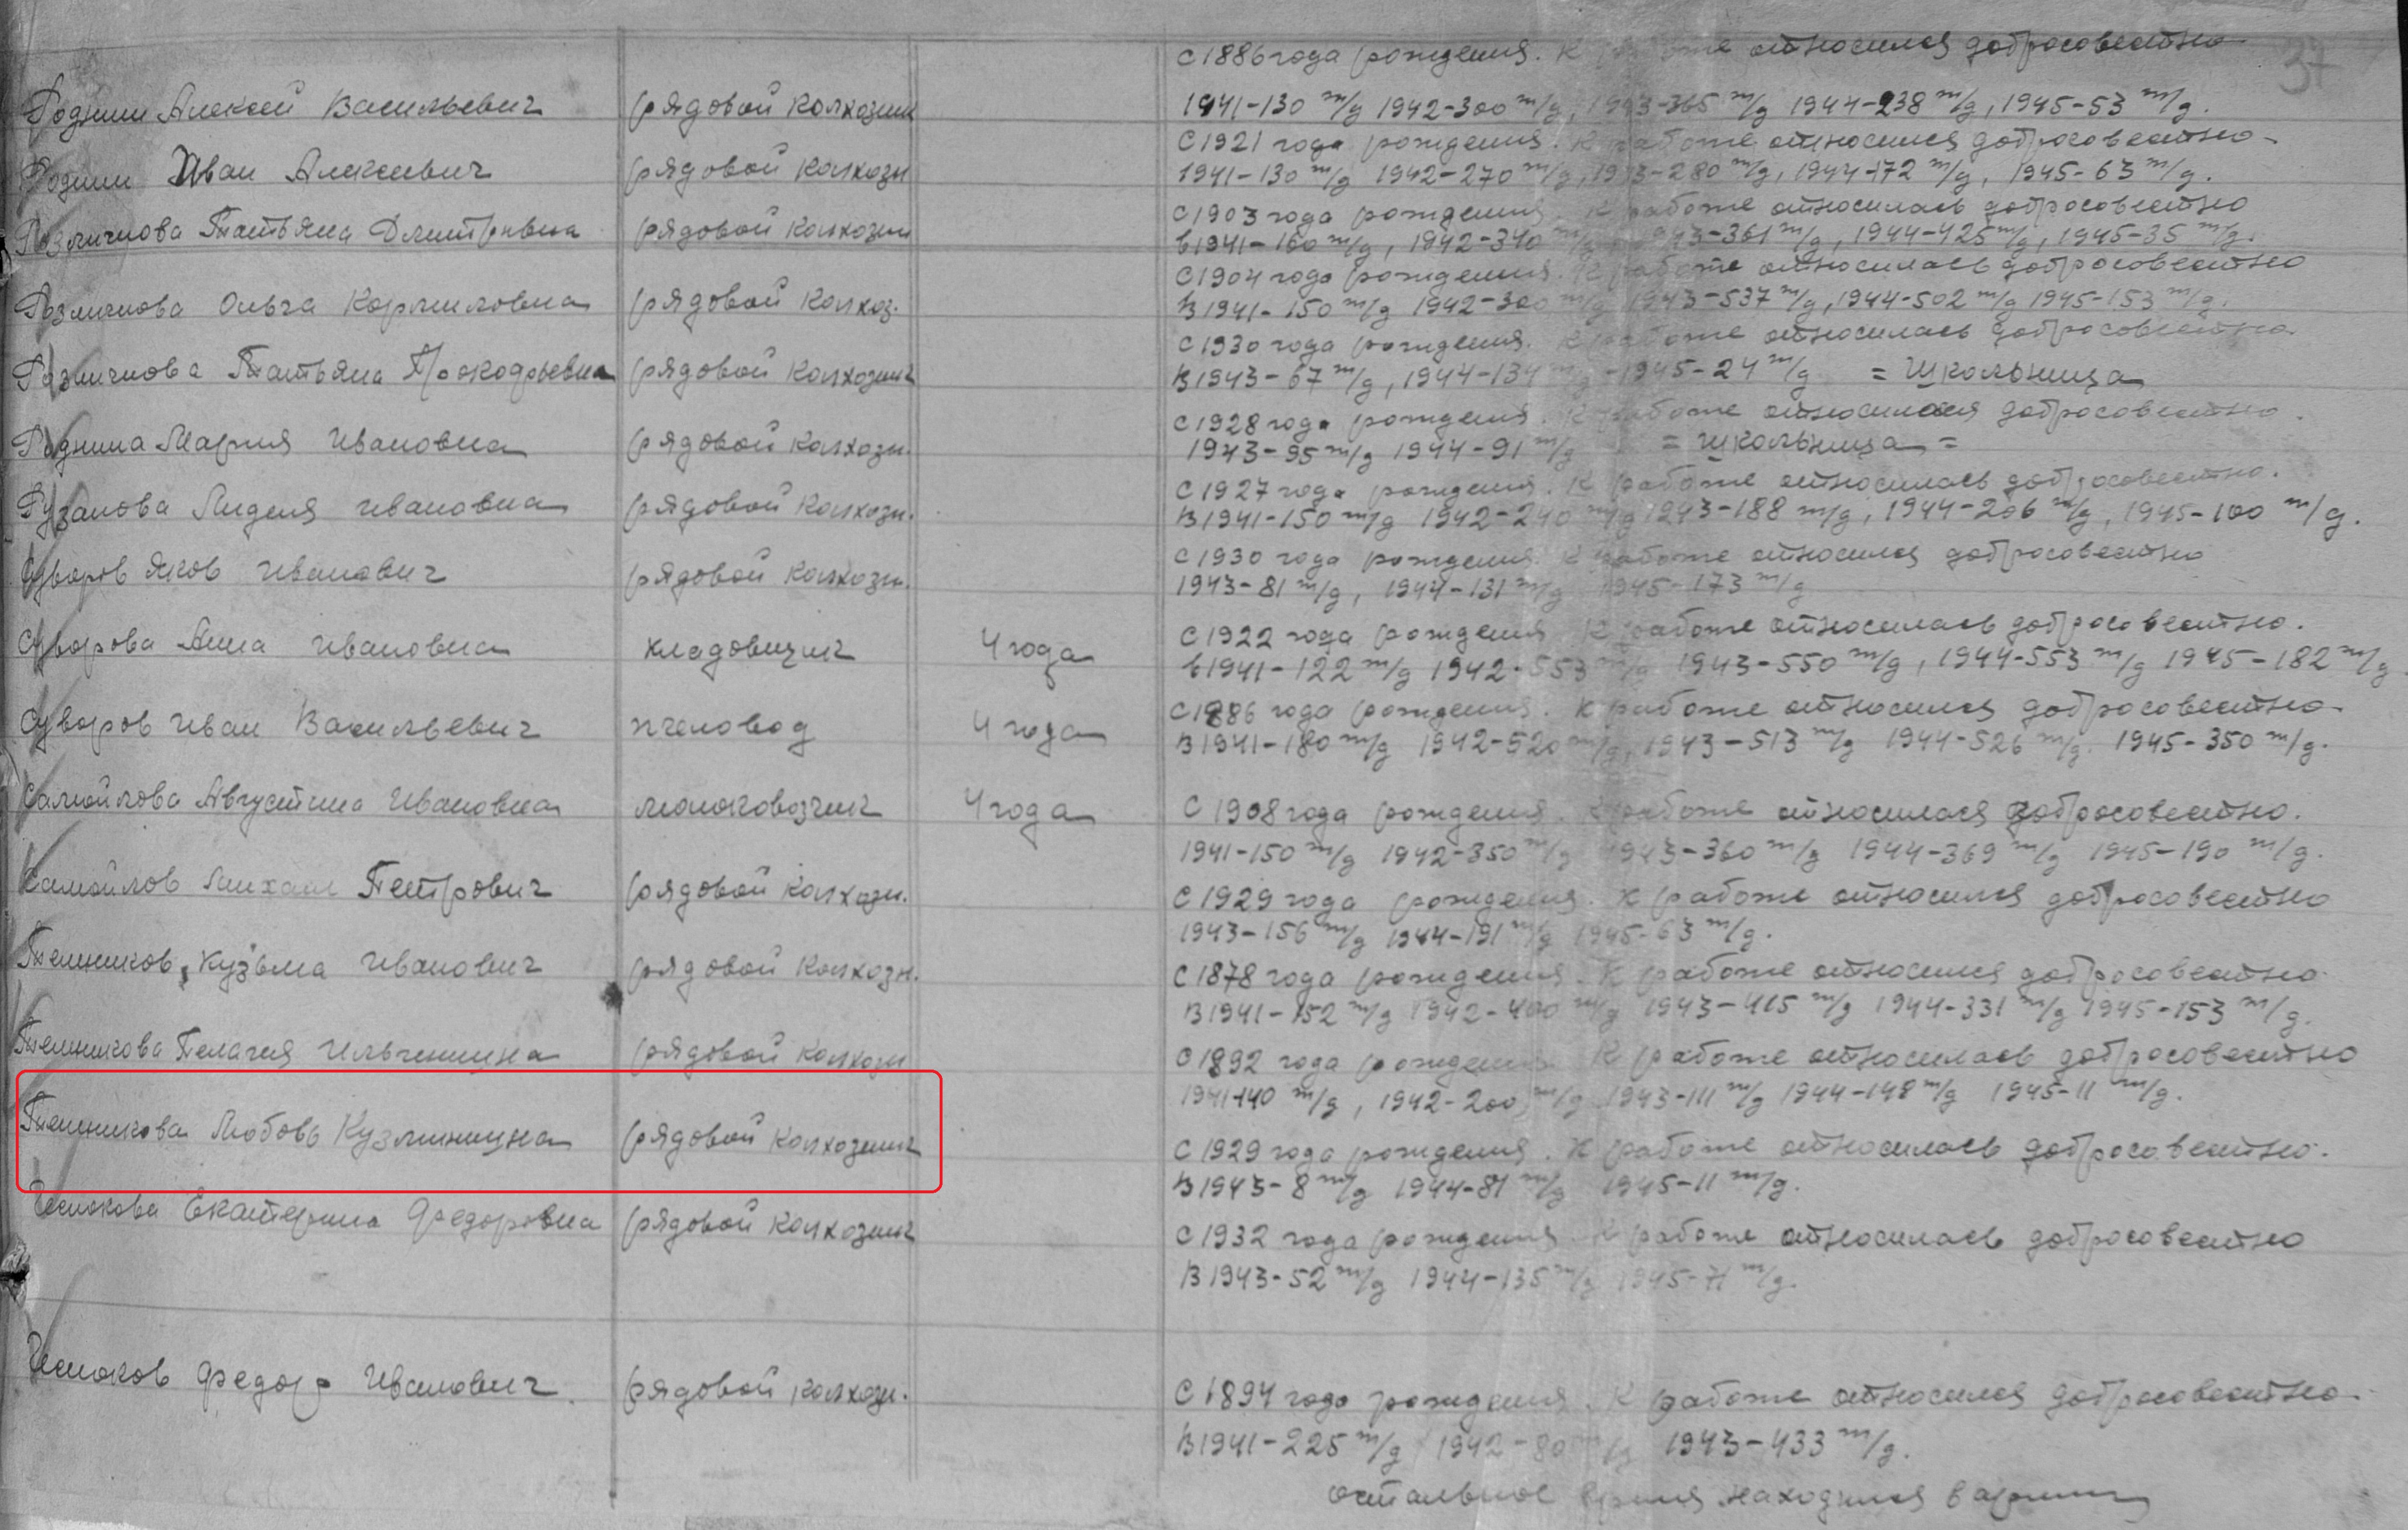 37
С 1886 года рождения. К работе относился добросовестно
Роднин Алексей Васильевич рядовой колхозник 1941-130 т/д 1942-300 т/д, 1943-365 т/д 1944-238 т/д, 1945-53 т/д.
С 1921 года рождения. К работе относился добросовестно-
Роднин Иван Алексеевич рядовой колхозн 1941-130 т/д 1942-270 т/д, 1943-280 т/д, 1944-172 т/д, 1945-63 т/д.
С 1903 года рождения. К работе относилась добросовестно
Татьяна Дмитривна рядовой колхозн в 1941-160 т/д, 1942-340 т/д 1943-361 т/д, 1944-425 т/д, 1945-35 т/д.
С 1904 года рождения. К работе относилась добросовестно
Ольга Корниловна рядовой колхоз. В 1941-150 т/д 1942-300 т/д 1943-537 т/д, 1944-502 т/д 1945-153 т/д.
С 1930 года рождения. К работе относилась добросовестно.
Татьяна Прокофьевна рядовой колхозник В 1943-67 т/д, 1944-134 т/д -1945-24 т/д = Школьница
С 1928 года рождения. К работе относилася добросовестно.
Роднина Мария Ивановна рядовой колхозн. 1943-95 т/д 1944-91 т/д = школьница =
С 1927 года рождения. К работе относилась добросовестно.
Рузанова Лидия Ивановна рядовой колхозн. В 1941-150 т/д 1942-240 т/д 1943-188 т/д, 1944-206 т/д, 1945-100 т/д.
С 1930 года рождения. К работе относился добросовестно
Суворов Яков Иванович рядовой колхозн. 1943-81 т/д, 1944-131 т/д 1945-173 т/д
С 1922 года рождения К работе относилась добросовестно.
Суворова Анна Ивановна кладовщик 4 года в 1941-122 т/д 1942-553 т/д 1943-550 т/д, 1944-553 т/д 1945-182 т/д
С 1886 года рождения. К работе относился добросовестно-
Суворов Иван Васильевич пчеловод 4 года В 1941-180 т/д 1942-520 т/д, 1943-513 т/д 1944-526 т/д. 1945-350 т/д.
Самойлова Августина Ивановна молоковозчик 4 года С 1908 года рождения. К работе относилася добросовестно.
1941-150 т/д 1942-350 т/д 1943-360 т/д 1944-369 т/д 1945-190 т/д.
Самойлов Михаил Петрович рядовой колхозн. С 1929 года рождения. К работе относился добросовестно
1943-156 т/д 1944-191 т/д 1945-63 т/д.
Темников, Кузьма Иванович рядовой колхозн. С 1878 года рождения. К работе относился добросовестно.
В 1941-152 т/д 1942-400 т/д 1943-415 т/д 1944-331 т/д 1945-153 т/д.
Темникова Пелагия Ильинишна рядовой колхозн С 1892 года рождения К работе относилась добросовестно
1941-140 т/д, 1942-200 т/д 1943-111 т/д 1944-148 т/д 1945-11 т/д.
Темникова Любовь Кузминищна рядовой колхозник С 1929 года рождения. К работе относилась добросовестно.
В 1943-8 т/д 1944-81 т/д 1945-11 т/д.
Чеснокова Екатерина Федоровна рядовой колхозник С 1932 года рождения К работе относилась добросовестно
В 1943-52 т/д 1944-135 т/д 1945-71 т/д.
Чесноков Федор Иванович рядовой колхозн. С 1894 года рождения. К работе относился добросовестно.
В 1941-225 т/д 1942-80 т/д 1943-433 т/д.
остальное время находился в армии